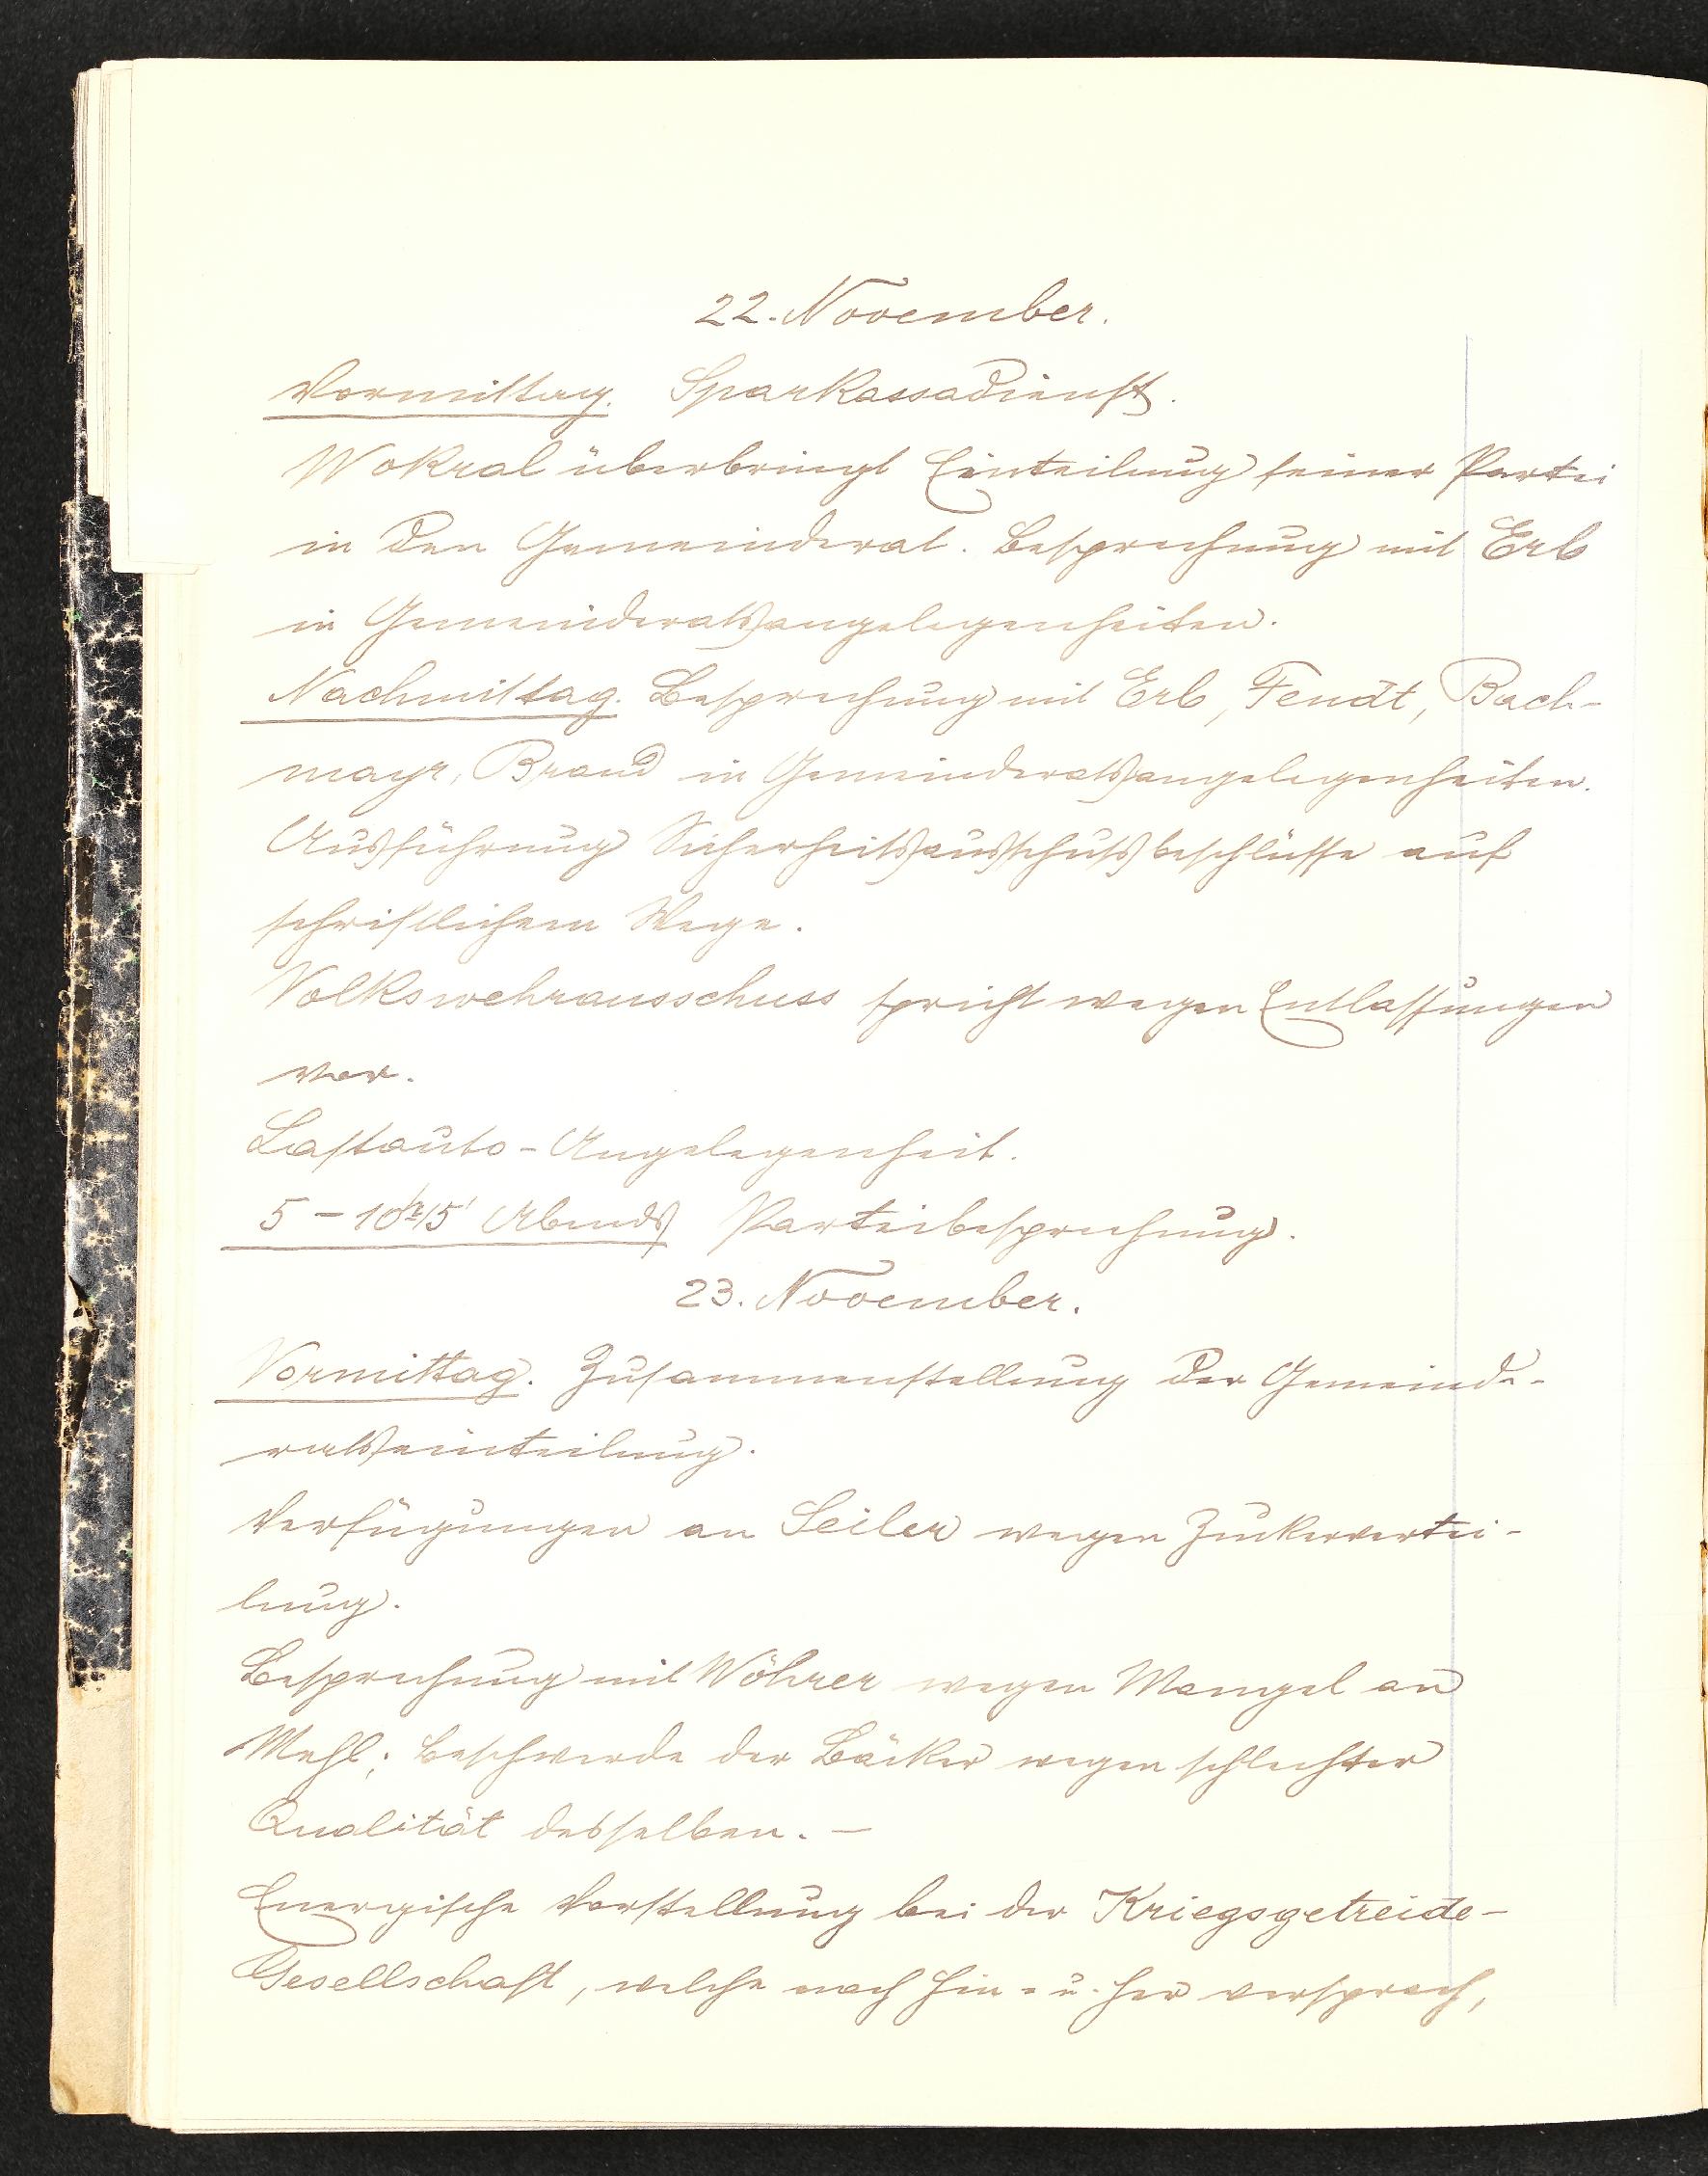 22. November.
Vormittag. Sparkassadienst.
Wokral überbringt Einteilung seiner Partei
in den Gemeinderat. Besprechung mit Erb
in Gemeinderatsangelegenheiten.
Nachmittag. Besprechung mit Erb, Fendt, Bach-
mayr, Brand in Gemeinderatsangelegenheiten.
Ausführung Sicherheitsausschussbeschlüsse auf
schriftlichem Wege.
Volkswehrausschuss spricht wegen Entlassungen
vor.
Lastauto-Angelegenheit.
5 - 10h15' Abends Parteibesprechung.
23. November.
Vormittag. Zusammenstellung der Gemeinde-
ratseinteilung.
Verfügungen an Seiler wegen Zuckervertei-
lung.
Besprechung mit Wöhrer wegen Mangel an
Mehl; Beschwerde der Bäcker wegen schlechter
Qualität desselben. —
Energische Vorstellung bei der Kriegsgetreide-
Gesellschaft, welche nach hin- u. her versprach,